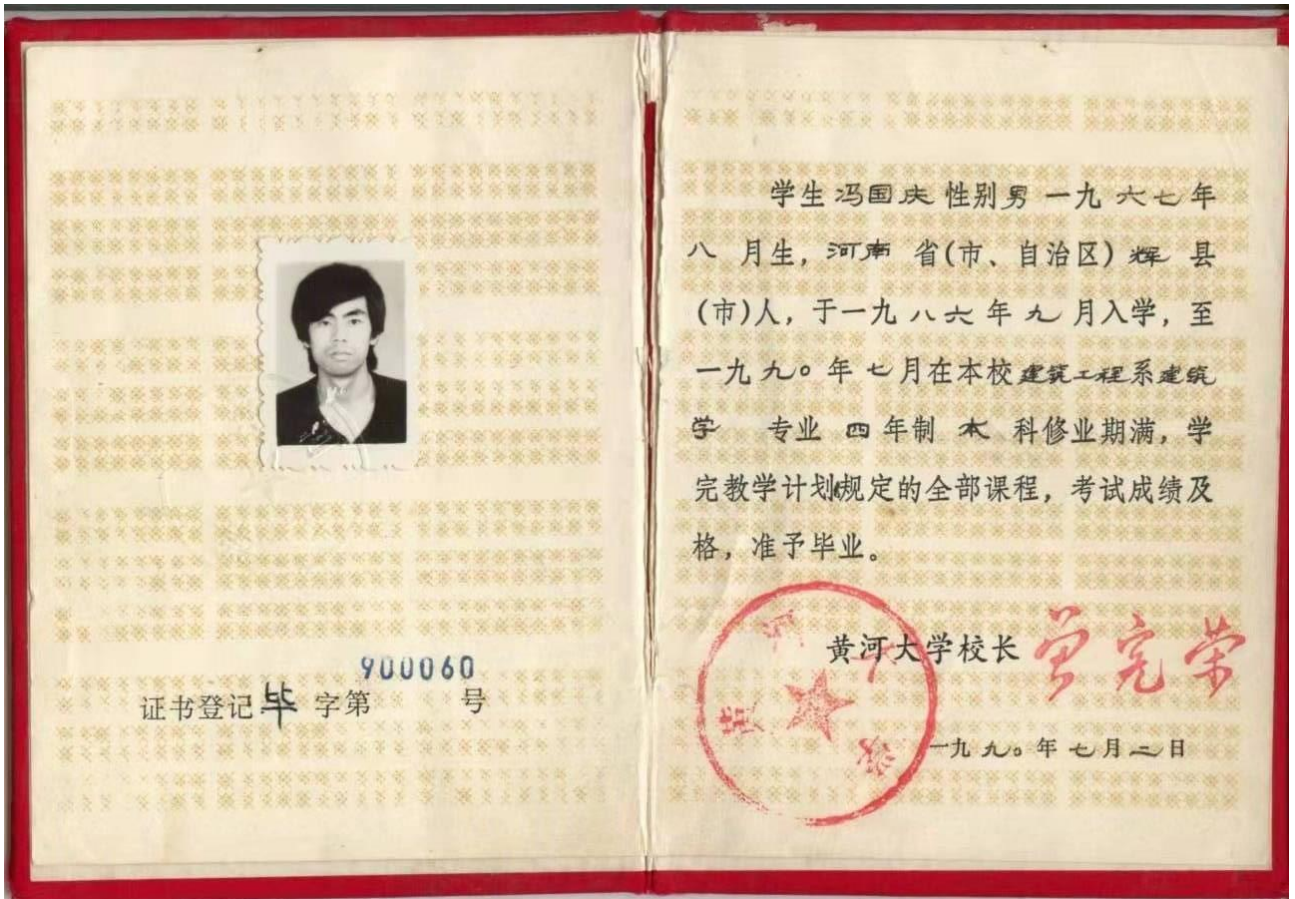 900060
证书登记毕字第 号
学生冯国庆性别男一九六七年
八月生，河南省(市、自治区)辉县
(市)人，于一九八六年九月入学，至
一九九〇年七月在本校建筑工程系建筑
学 专业四年制本科修业期满，学
完教学计划规定的全部课程，考试成绩及
格，准予毕业。
黄河大学校长
黄河大学
一九九〇年七月二日